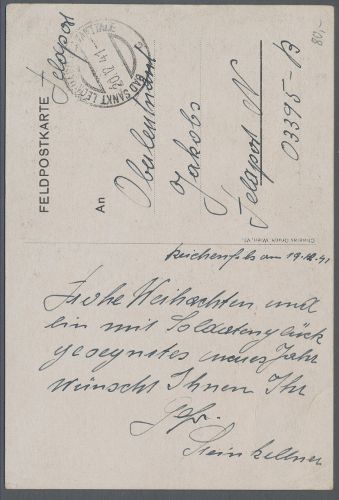 80,-
Feldpost
BAD SANKT LEONHARD
20.12.41
FELDPOSTKARTE
An
Oberleutnant
Jakobs
Feldpost N
03395-B
Chwalas Druck, Wien, VI.
Reichenfels am 19.12.41
Frohe Weihnachten und
ein mit Soldatenglück
gesegnetes neues Jahr
wünscht Ihnen Ihr
Gefr.
Steinkellner